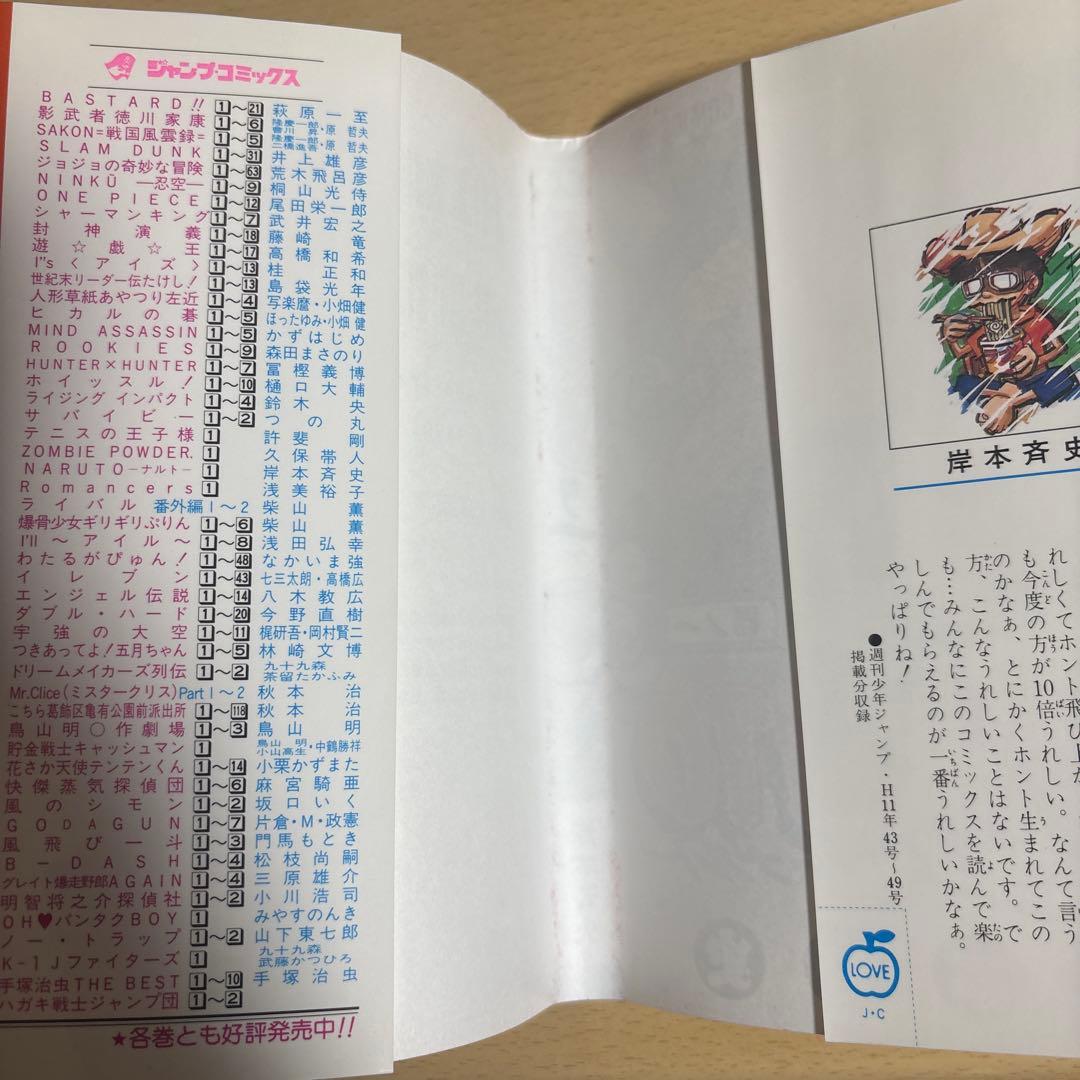 ジャンプ・コミックス
BASTARD!! 1〜21 萩原一至
影武者徳川家康 1〜6 隆慶一郎 會川昇・原哲夫
SAKON=戦国風雲録= 1〜5 隆慶一郎 二橋進吾・原哲夫
SLAM DUNK 1〜31 井上雄彦
ジョジョの奇妙な冒険 1〜63 荒木飛呂彦
NINKŪ —忍空— 1〜9 桐山光侍
ONE PIECE 1〜12 尾田栄一郎
シャーマンキング 1〜7 武井宏之
封神演義 1〜18 藤崎竜
遊☆戯☆王 1〜17 高橋和希
I"s〈アイズ〉 1〜13 桂正和
世紀末リーダー伝たけし! 1〜13 島袋光年
人形草紙あやつり左近 1〜4 写楽麿・小畑健
ヒカルの碁 1〜5 ほったゆみ・小畑健
MIND ASSASSIN 1〜5 かずはじめ
ROOKIES 1〜9 森田まさのり
HUNTER×HUNTER 1〜7 冨樫義博
ホイッスル! 1〜10 樋口大輔
ライジング インパクト 1〜4 鈴木央
サバイビー 1〜2 つの丸
テニスの王子様 1 許斐剛
ZOMBIE POWDER. 1 久保帯人
NARUTO—ナルト— 1 岸本斉史
Romancers 1 浅美裕子
ライバル 番外編1〜2 柴山薫
爆骨少女ギリギリぷりん 1〜6 柴山薫
I'll 〜アイル〜 1〜8 浅田弘幸
わたるがぴゅん! 1〜48 なかいま強
イレブン 1〜43 七三太朗・高橋広
エンジェル伝説 1〜14 八木教広
ダブル・ハード 1〜20 今野直樹
宇強の大空 1〜11 梶研吾・岡村賢二
つきあってよ!五月ちゃん 1〜5 林崎文博
ドリームメイカーズ列伝 1〜2 九十九森 茶留たかふみ
Mr.Clice(ミスタークリス)Part1〜2 秋本治
こちら葛飾区亀有公園前派出所 1〜118 秋本治
鳥山明○作劇場 1〜3 鳥山明
貯金戦士キャッシュマン 1 鳥山明 小山高生・中鶴勝祥
花さか天使テンテンくん 1〜14 小栗かずまた
快傑蒸気探偵団 1〜6 麻宮騎亜
風のシモン 1〜2 坂口いく
GODAGUN 1〜7 片倉・M・政憲
風飛び一斗 1〜3 門馬もとき
B-DASH 1〜4 松枝尚嗣
グレイト爆走野郎AGAIN 1〜4 三原雄介
明智将之介探偵社 1〜2 小川浩司
OH♥バンタクBOY 1 みやすのんき
ノー・トラップ 1〜2 山下東七郎
K-1Jファイターズ 1 九十九森 武藤かつひろ
手塚治虫THE BEST 1〜10 手塚治虫
ハガキ戦士ジャンプ団 1〜2
★各巻とも好評発売中!!
岸本斉史
れしくてホント飛び上が
も今度の方が10倍うれしい。なんて言う
のかなぁ、とにかくホント生まれてこの
方、こんなうれしいことはないです。で
も…みんなにこのコミックスを読んで楽
しんでもらえるのが一番うれしいかなぁ。
やっぱりね!
●週刊少年ジャンプ・H11年43号〜49号
掲載分収録
LOVE
J・C